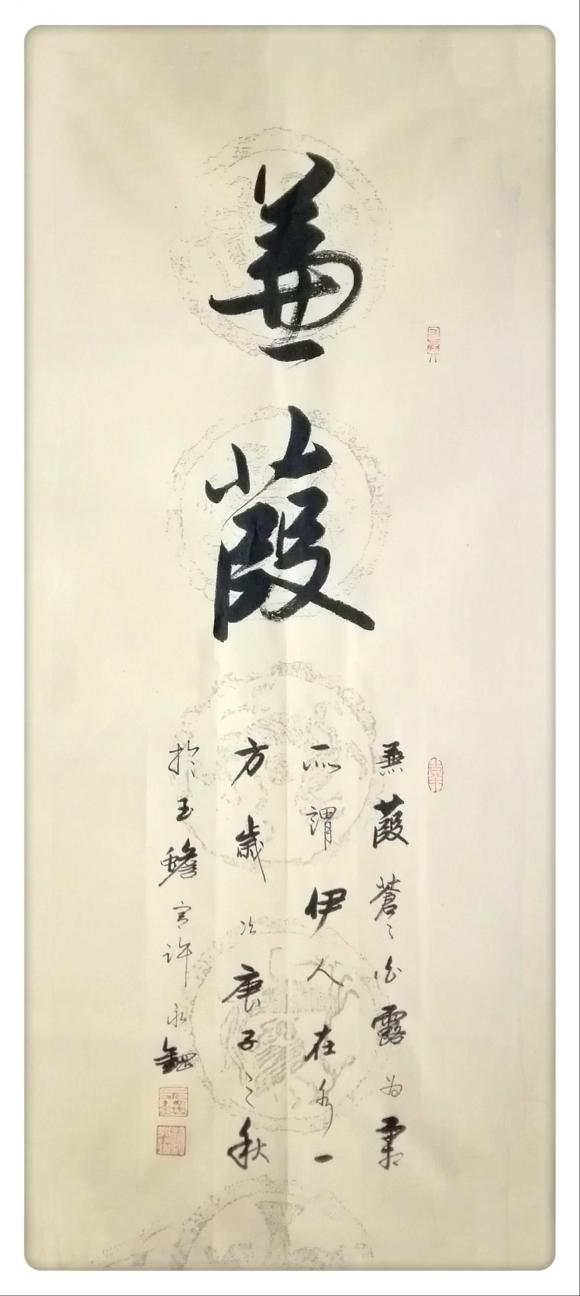 蒹
葭
蒹葭蒼〻白露为霜
所謂伊人在水一
方歲次庚子之秋
於玉蟾宫许永鋼